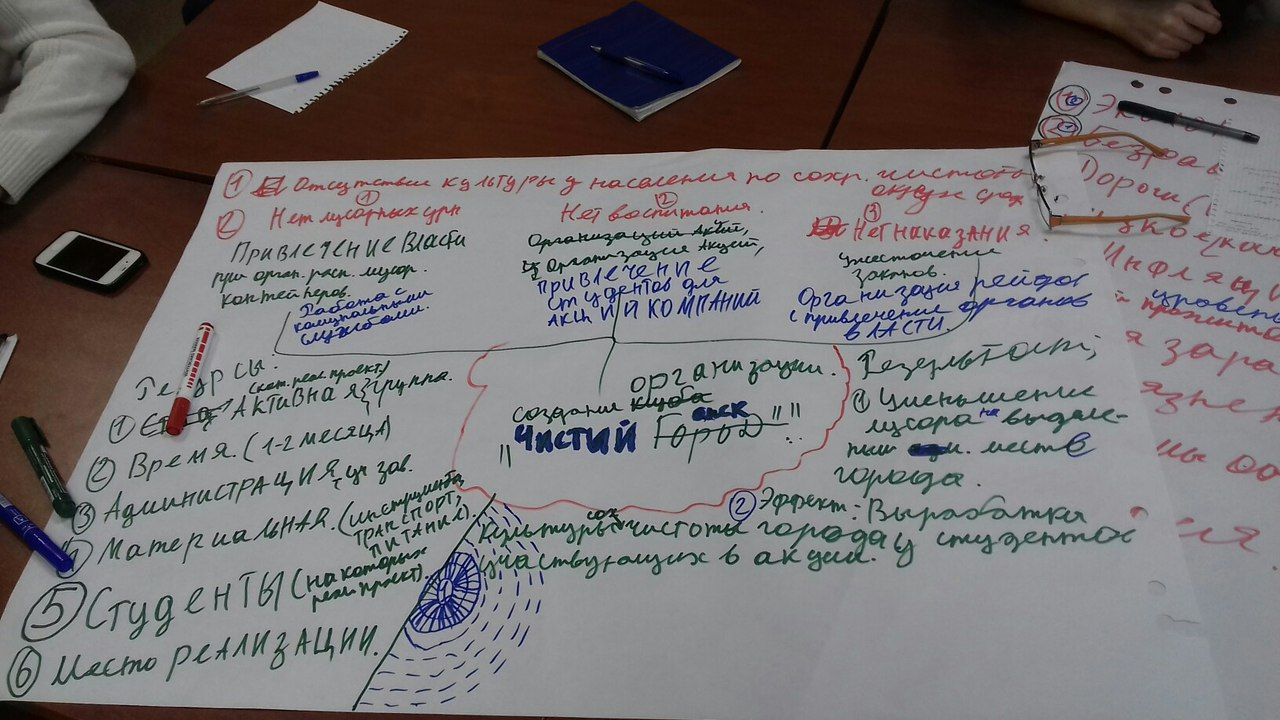 ① Отсутствие культуры у населения по сохр. чистоты
окруж сред
② Нет мусорных урн
①
Привлечение Власти
при орган. расп. мусор.
контейнеров.
Работа с
коммунальными
службами.
②
Нет воспитания.
Организаций Актив,
Организация Акций,
Привлечение
студентов для
акций и компаний
③
Нет наказания.
ужесточение
законов.
Организация рейдов
с привлечение органов
власти.
Ресурсы.
(кот. реал. проект)
① Активная группа.
② Время. (1-2 месяца)
③ Администрация уч зав.
④ Материальная. (инструменты,
транспорт,
питания).
⑤ Студенты (на которых
реал. проект).
⑥ Место реализации.
организации.
создание клуба
"Чистий Город"
Результат;
① Уменьшение
мусора на выдале-
ных месте
города.
② Эффект: Выработка
культуры сох чистоты города у студентов
участвующих в акции.
Дороги
Инфляци
уровень
прожито
зара